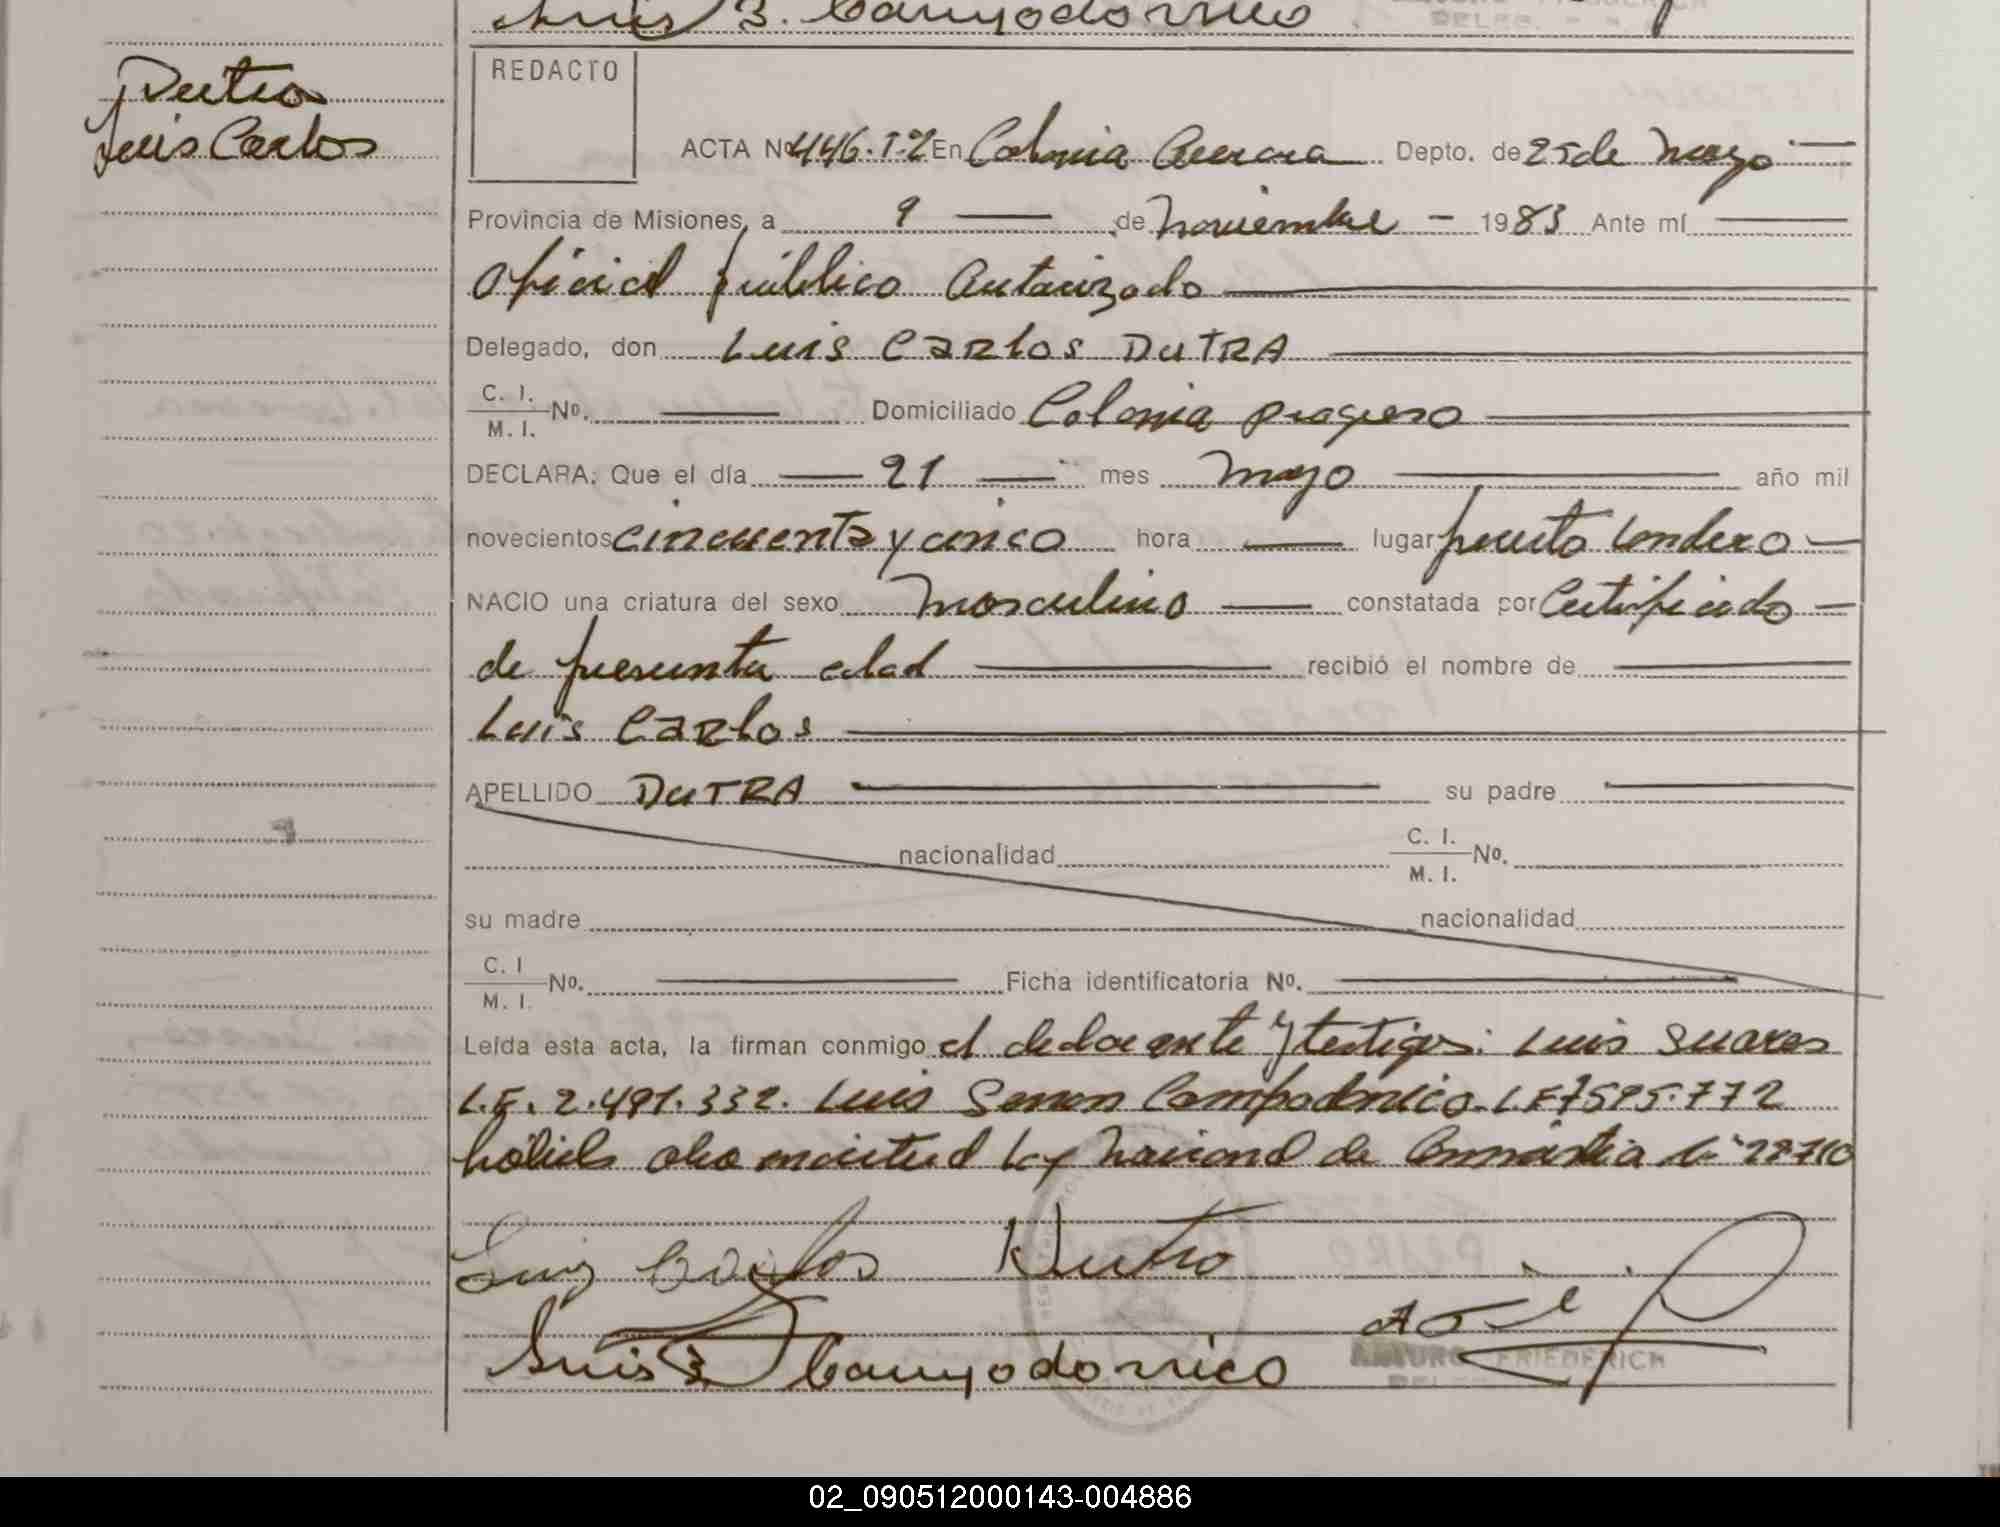 Luis S. Campodonico
Dutra
Luis Carlos
REDACTO
ACTA Nº 446.T.2 En Colonia Aurora Depto. de 25 de Mayo
Provincia de Misiones, a 9 de Noviembre 1983 Ante mí
Oficial público Autorizado
Delegado, don Luis Carlos DUTRA
C. I.
M. I. No. Domiciliado Colonia progreso
DECLARA: Que el día 21 mes Mayo año mil
novecientos cincuenta y cinco hora lugar puerto Londero
NACIO una criatura del sexo Masculino constatada por Certificado
de presunta edad recibió el nombre de
Luis Carlos
APELLIDO DUTRA su padre
nacionalidad C. I.
M. I. No.
su madre nacionalidad
C. I
M. I. No. Ficha identificatoria No.
Leída esta acta, la firman conmigo el declarante y testigos: Luis Suares
L.E. 2.491.332. Luis Campodonico. L.E 7595.772
Ley Nacional de Amnistia
Luis Carlos Dutra
Luis S. Campodonico
ARTURO FRIEDERICH
02_090512000143-004886